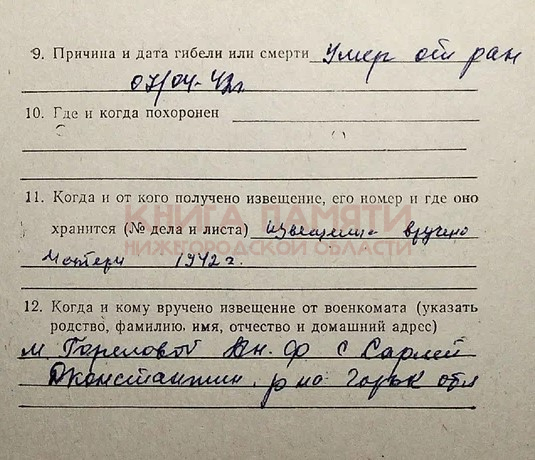 9. Причина и дата гибели или смерти Умер от ран
07/04-42г
10. Где и когда похоронен
11. Когда и от кого получено извещение, его номер и где оно
хранится (№ дела и листа) извещение вручено
Матери 1942 г.
КНИГА ПАМЯТИ
НИЖЕГОРОДСКОЙ ОБЛАСТИ
12. Когда и кому вручено извещение от военкомата (указать
родство, фамилию, имя, отчество и домашний адрес)
м. Гореловой Ф с Сарлей
Дконстантин. р на Горьк обл